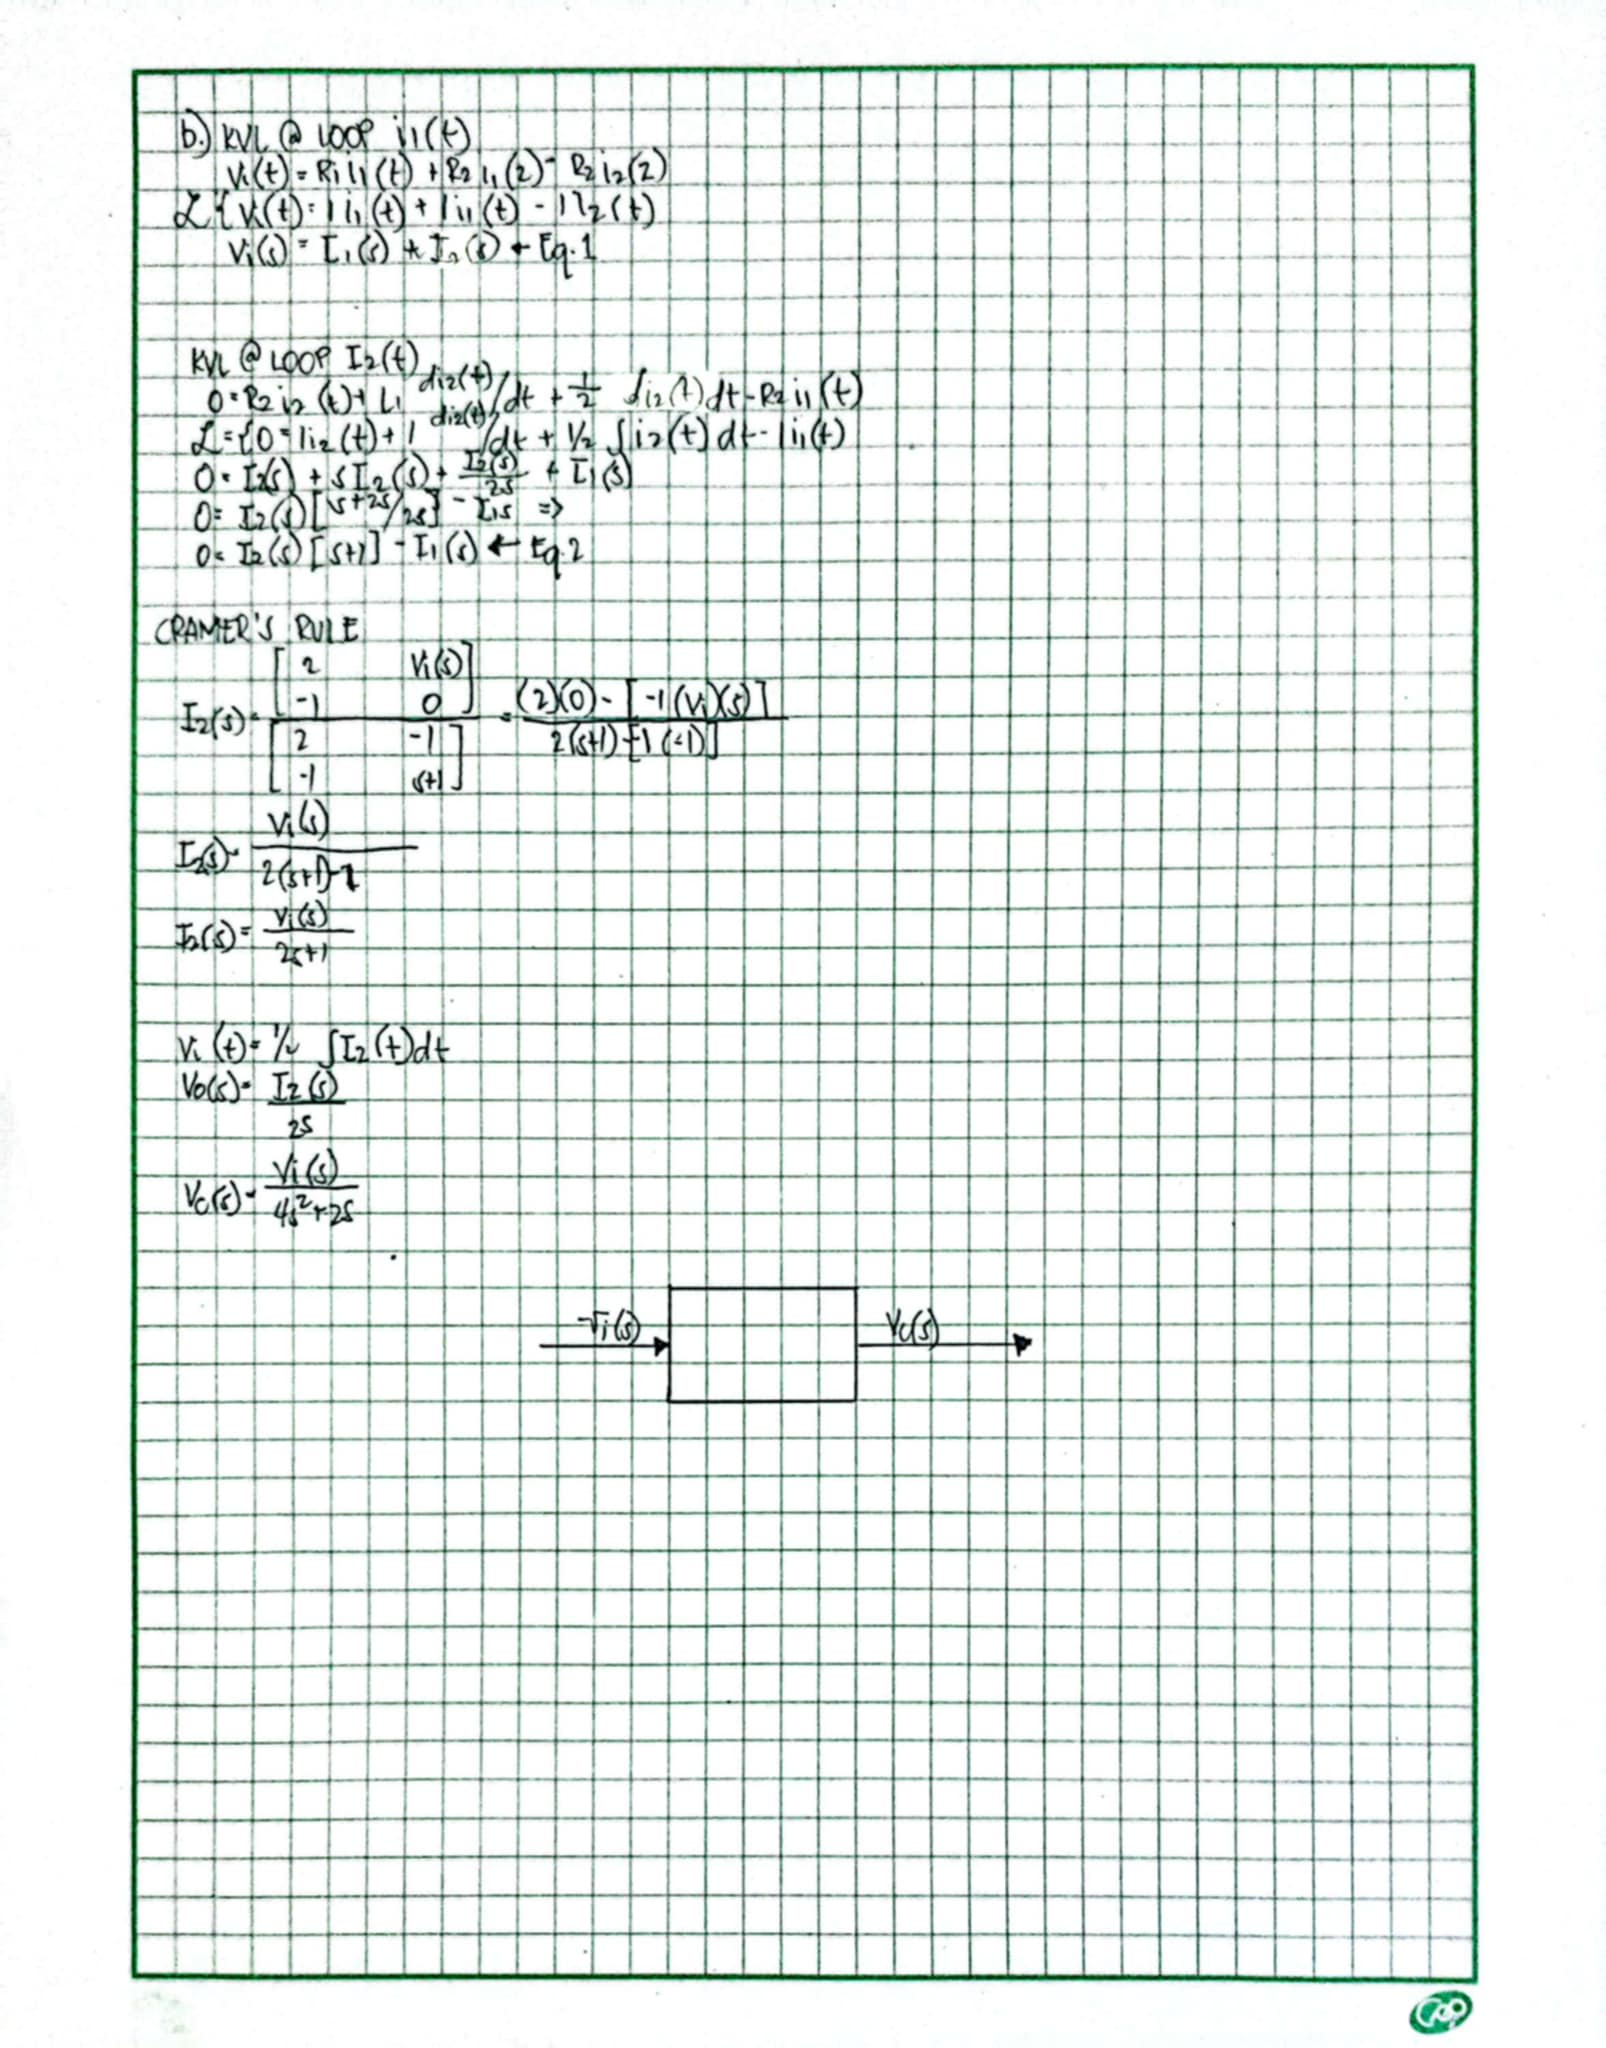 b.) KVL @ LOOP i1(t)
Vi(t) = R1 i1(t) + R2 i1(2) - R2 i2(2)
ℒ{Vi(t) = 1 i1(t) + 1 i1(t) - 1 i2(t)
Vi(s) = I1(s) + I2(s) ← Eq.1
KVL @ LOOP I2(t)
0 = R2 i2(t) + L1 di2(t)/dt + 1/2 ∫i2(t)dt - R2 i1(t)
ℒ = {0 = 1i2(t) + 1 di2(t)/dt + 1/2 ∫i2(t)dt - 1i1(t)
0 = I2(s) + sI2(s) + I2(s)/2s + I1(s)
0 = I2(s)[s+2s/2s] - I1s =>
0 = I2(s)[s+1] - I1(s) ← Eq.2
CRAMER'S RULE
I2(s) = [2 Vi(s) -1 0] / [2 -1 -1 s+1] = (2)(0) - [-1(Vi)(s)] / 2(s+1) - [-1(-1)]
I2(s) = Vi(s) / 2(s+1)-1
I2(s) = Vi(s) / 2s+1
Vi(t) = 1/2 ∫I2(t)dt
Vo(s) = I2(s) / 2s
Vc(s) = Vi(s) / 4s²+2s
Vi(s) Vc(s)